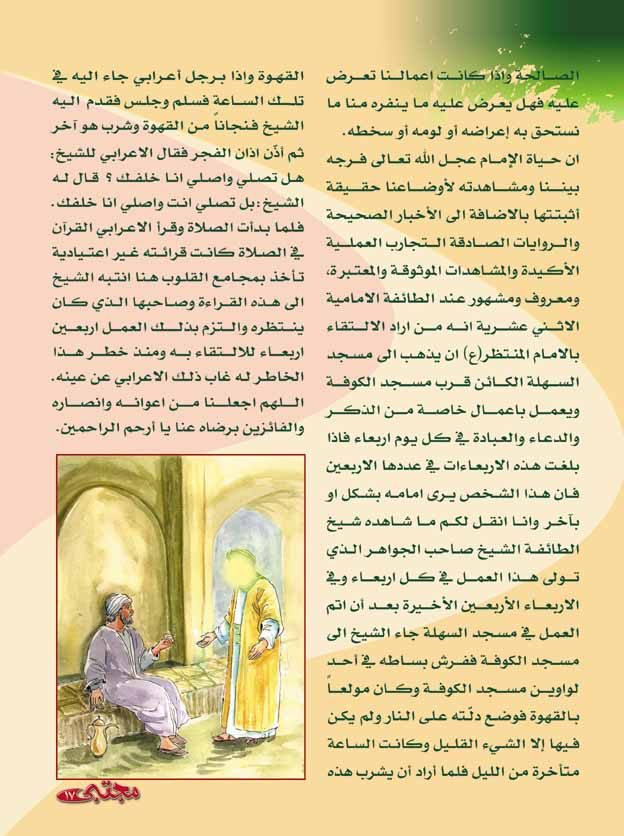 الصالحة واذا كانت اعمالنا تعرض
عليه فهل يعرض عليه ما ينفره منا ما
نستحق به إعراضه أو لومه أو سخطه.
ان حياة الإمام عجل الله تعالى فرجه
بيننا ومشاهدته لأوضاعنا حقيقة
أثبتتها بالاضافة الى الأخبار الصحيحة
والروايات الصادقة التجارب العملية
الأكيدة والمشاهدات الموثوقة والمعتبرة،
ومعروف ومشهور عند الطائفة الامامية
الاثني عشرية انه من اراد الالتقاء
بالامام المنتظر(ع) ان يذهب الى مسجد
السهلة الكائن قرب مسجد الكوفة
ويعمل باعمال خاصة من الذكر
والدعاء والعبادة في كل يوم اربعاء فاذا
بلغت هذه الاربعاءات في عددها الاربعين
فان هذا الشخص يرى امامه بشكل او
بآخر وانا انقل لكم ما شاهده شيخ
الطائفة الشيخ صاحب الجواهر الذي
تولى هذا العمل في كل اربعاء وفي
الاربعاء الأربعين الأخيرة بعد أن اتم
العمل في مسجد السهلة جاء الشيخ الى
مسجد الكوفة ففرش بساطه في أحد
لواوين مسجد الكوفة وكان مولعاً
بالقهوة فوضع دلّته على النار ولم يكن
فيها إلا الشيء القليل وكانت الساعة
متأخرة من الليل فلما أراد أن يشرب هذه
القهوة واذا برجل أعرابي جاء اليه في
تلك الساعة فسلم وجلس فقدم اليه
الشيخ فنجاناً من القهوة وشرب هو آخر
ثم أذّن اذان الفجر فقال الاعرابي للشيخ:
هل تصلي واصلي انا خلفك ؟ قال له
الشيخ:بل تصلي انت واصلي انا خلفك.
فلما بدأت الصلاة وقرأ الاعرابي القرآن
في الصلاة كانت قرائته غير اعتيادية
تأخذ بمجامع القلوب هنا انتبه الشيخ
الى هذه القراءة وصاحبها الذي كان
ينتظره والتزم بذلك العمل اربعين
اربعاء للالتقاء به ومنذ خطر هذا
الخاطر له غاب ذلك الاعرابي عن عينه.
اللهم اجعلنا من اعوانه وانصاره
والفائزين برضاه عنا يا أرحم الراحمين.
مجتبى ١٧